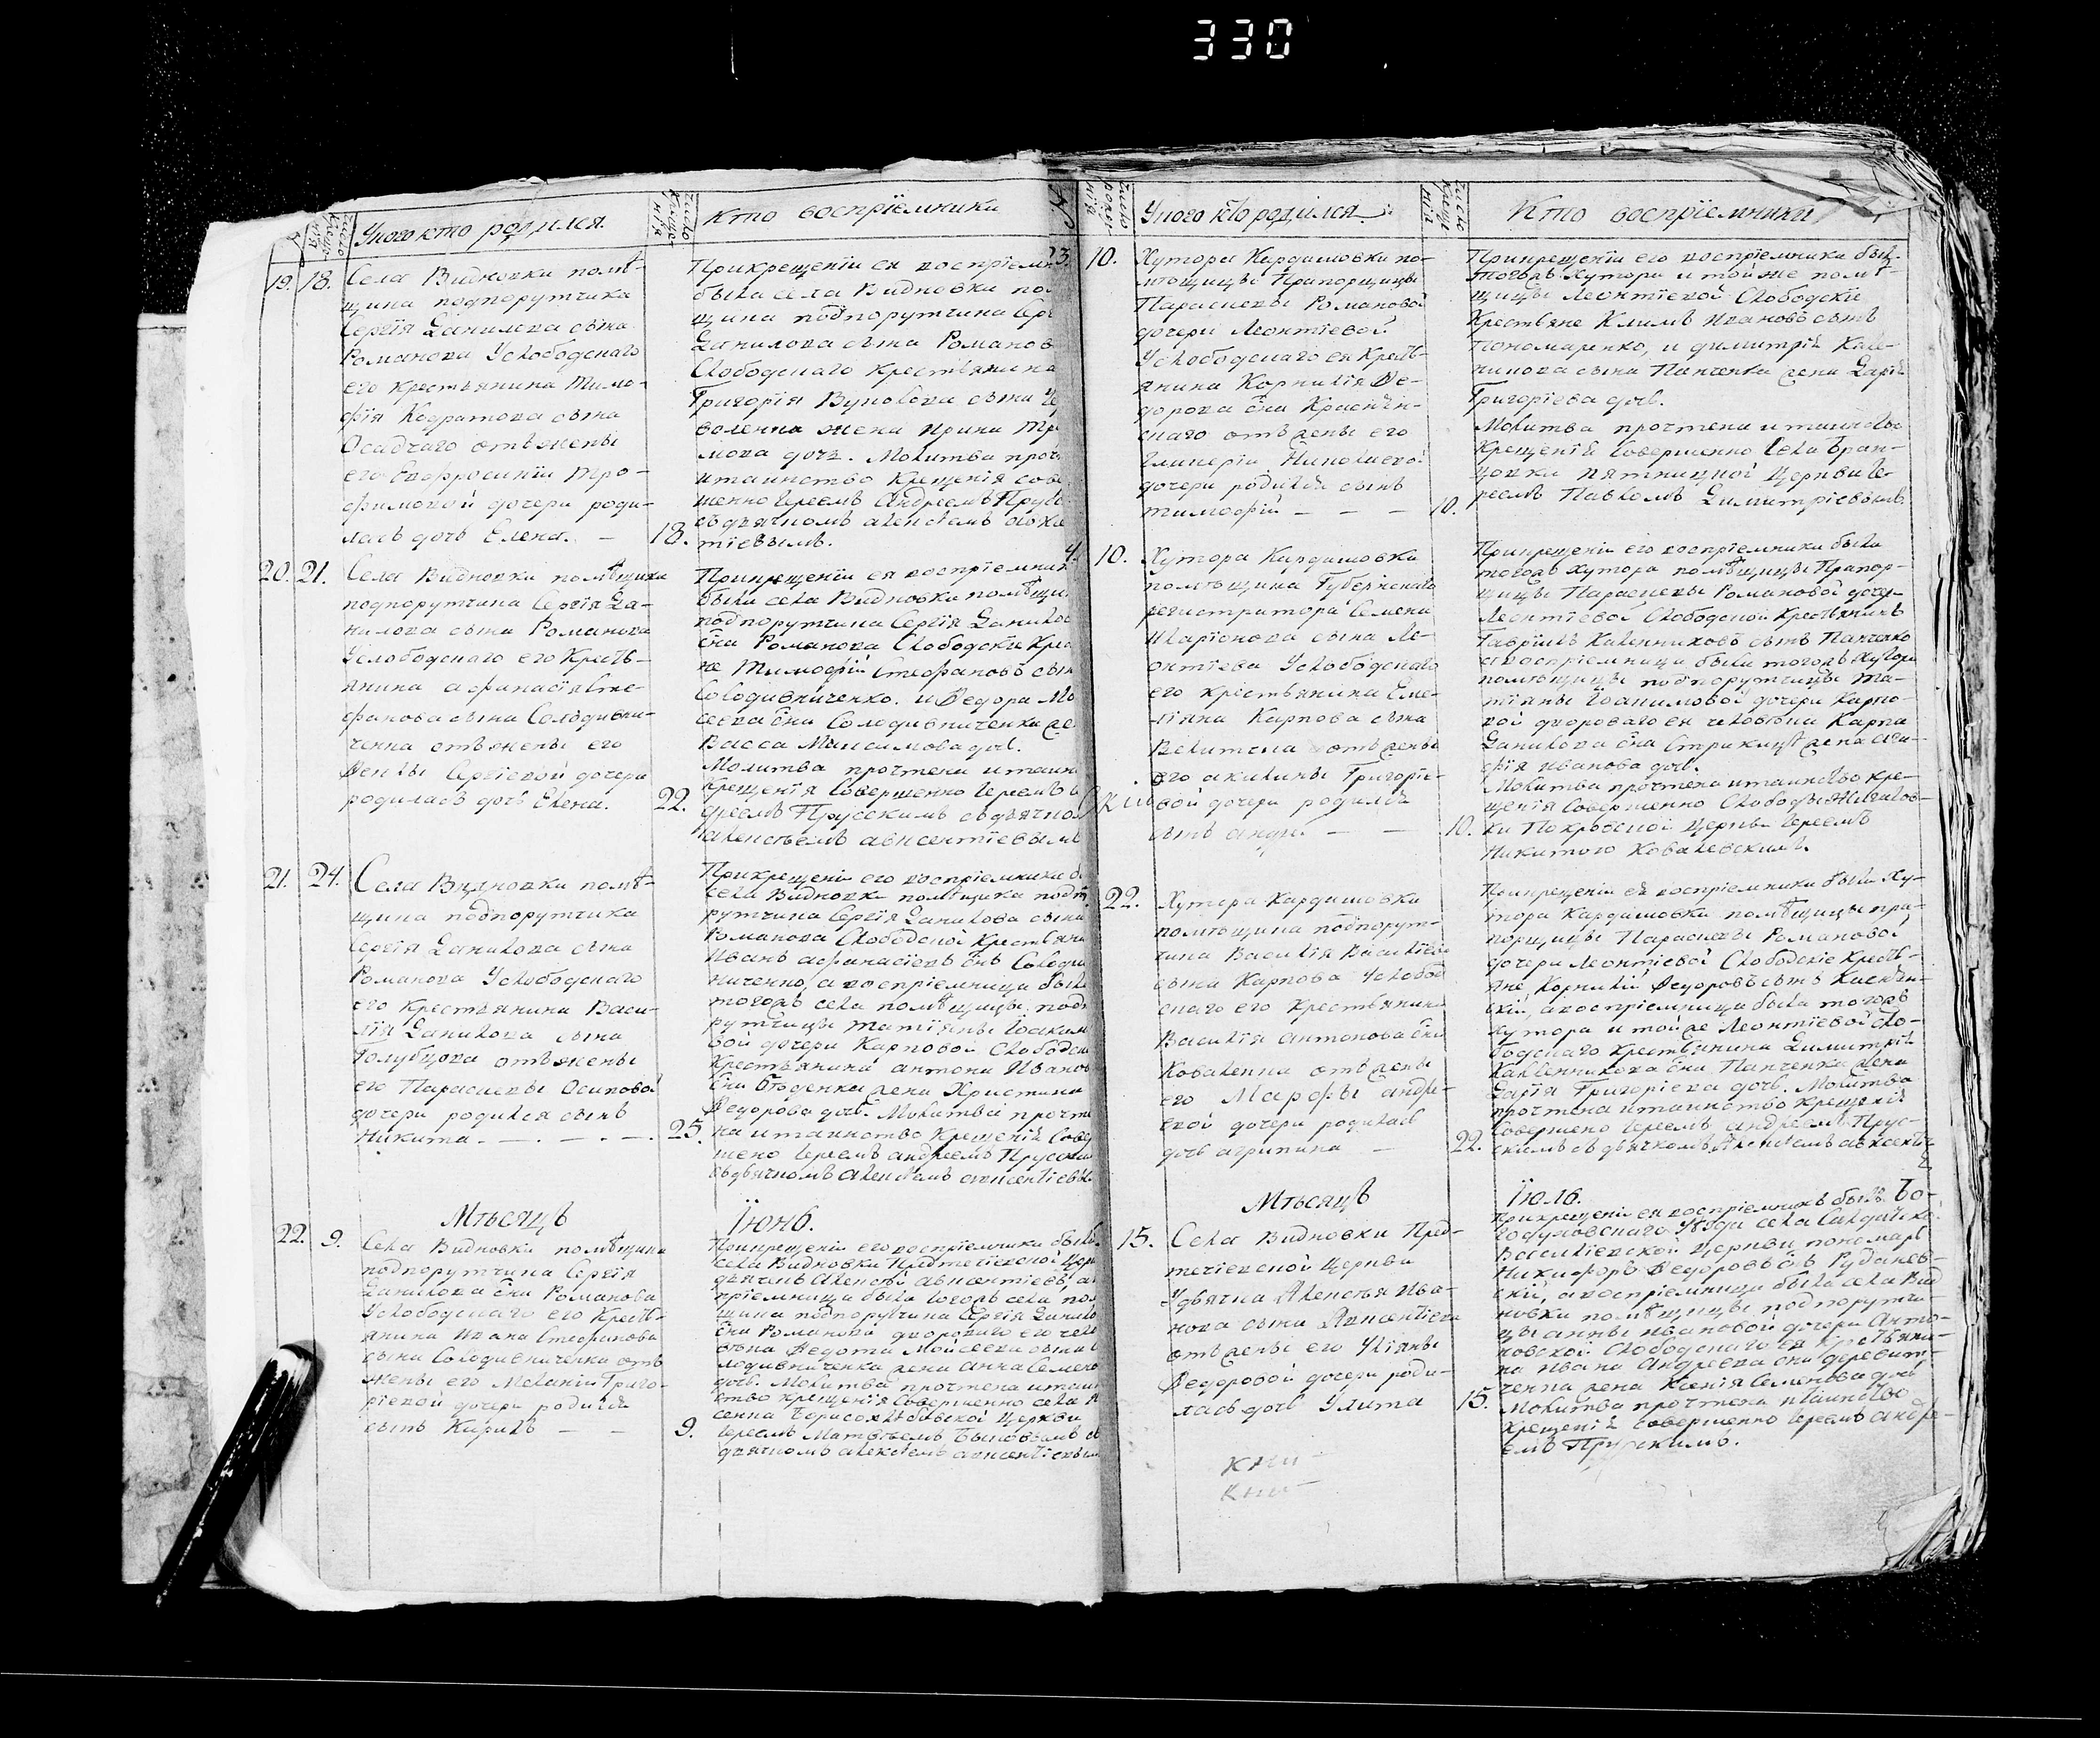 330
№
число крещенія
У кого кто родился.
число крещенія
Кто воспріемники
19. 18.
Села Видновки помѣ-
щика подпорутчика
Сергія Данилова сына
Романова Услободскаго
его крестьянина Тимо-
фія Кодратова сына
Осадчаго отъ жены
его Евфросиніи Тро-
фимовой дочери роди-
лась дочь Елена. —
18.
При крещеніи ея воспріемни
была села Видновки по
щика подпорутчика Сер
Данилова сына Романов
Слободскаго крестьянина
Григорія сына
жена Ирина Тр
мова дочь. Молитва проч
и таинство крещенія сове
шенно Іереемъ Андреемъ Прус
съ дьячкомъ Алексѣемъ
тіевымъ.
20. 21.
Села Видновки помѣщика
подпорутчика Сергія Да-
нилова сына Романова
Услободскаго его Кресть-
янина Афанасія Сте-
фанова сына Солодивни-
ченка отъ жены его
Феклы Сергіевой дочери
родилась дочь Елена.
22.
При крещеніи ея воспріемник
были села Видновки помѣщи
подпорутчика Сергія Данилов
сна Романова Слободскіе Крес
не Тимофій Стефановъ сын
Солодивниченко. и Федора Мо
сеева сна Солодивниченка же
Васса Максимова дочь.
Молитва прочтена и таин
Крещенія совершенно Іереемъ
дреемъ Прусскимъ съ дьячко
Алексѣемъ Авксентіевымъ
21. 24.
Села Видновки помѣ-
щика подпорутчика
Сергія Данилова сына
Романова Услободскаго
его Крестьянина Васи-
лія Данилова сына
Голубцова отъ жены
его Параскевы Осиповой
дочери родился сынъ
Никита. — . — . — .
25.
При крещеніи его воспріемники б
села Видновки помѣщика подпо
рутчика Сергія Данилова сына
Романова Слободской Крестьяни
Иванъ Афанасіевъ снъ Солодив
ниченко, а воспріемница была
тогожъ села помѣщицы подп
рутчицы Татіяны Іоаким
вой дочери Карповой Слободск
Крестьянина Антона Иванов
сна жена Христина
Федорова дочь. Молитва прочте
на и таинство Крещенія Совер
шено Іереемъ Андреемъ Прусским
съ дьячкомъ Алексѣемъ Авксентіевы
Мѣсяцъ Іюнь.
22. 9.
Села Видновки помѣщика
подпорутчика Сергія
Данилова сна Романова
Услободскаго его Кресть-
янина Ивана Стефанова
сына Солодивниченка отъ
жены его Меланіи Григо-
ріевой дочери родился
сынъ Кирилъ — —
9.
При крещеніи его воспріемники были
села Видновки Предтечіевской Цер
дьячекъ Алексѣй Авксентіевъ, а
пріемница была тогожъ села пом
щика подпорутчика Сергія Данило
сна Романова двороваго его чело
вѣка Федота Мойсеева сына
лодивниченка жена Анна Семено
дочь. Молитва прочтена и таин
ство крещенія Совершенно села
Борисоглѣбской Церкви
Іереемъ Матвѣемъ Быковымъ съ
дьячкомъ Алексѣемъ Авксентіевым
№
число рожденія
У кого кто родился
число крещенія
Кто воспріемники
23. 10.
Хутора Кардашовки по-
мѣщицы Прапорщицы
Параскевы Романовой
дочери Леонтіевой
Услободскаго ея Крест-
янина Корнилія Фе-
дорова сна
скаго отъ жены его
Гликеріи Николаевой
дочери родился сынъ
Тимофій — — —
10.
При крещеніи его воспріемники были
тогожъ Хутора и той же помѣ-
щицы Леонтіевой Слободскіе
Крестьяне Климъ Ивановъ сынъ
Пономаренко, и Димитрія Кале-
никова сына Панченка жена Дарія
Григоріева дочь.
Молитва прочтена и таинство
Крещенія Совершенно села Бран-
цовки пятницкой Церкви Іе-
реемъ Павломъ Димитріевымъ
4. 10.
Хутора Кардашовки
помѣщика Губернскаго
регистратора Семена
Иларіонова сына Ле-
онтіева Услободскаго
его крестьянина Еме-
ліяна Карпова сына
отъ жены
его Акилины Григоріе-
вой дочери родился
сынъ Андрей — —
10.
При крещеніи его воспріемники были
тогожъ хутора помѣщицы Прапор-
щицы Параскевы Романовой дочери
Леонтіевой Слободской Крестьянинъ
Гавріилъ Каленниковъ сынъ Панченко
а воспріемница была тогожъ хутора
помѣщицы подпорутчицы Та-
тіяны Іоакимовой дочери Карпо-
вой двороваго ея человѣка Карпа
Данилова сна жена Ага-
фія Иванова дочь.
Молитва прочтена и таинство кре-
щенія Совершенно Слободы
ки Покровской Церкви Іереемъ
Никитою Ковалевскимъ.
22.
Хутора Кардашовки
помѣщика подпорут-
чика Василія Василіева
сына Карпова Услобод
скаго его Крестьянина
Василія Антонова сна
Коваленка отъ жены
его Марфы Андре-
евой дочери родилась
дочь Агрипина —
22.
При крещеніи ея воспріемники были Ху-
тора Кардашовки помѣщицы пра-
порщицы Параскевы Романовой
дочери Леонтіевой Слободскіе Кресть-
яне, Корнилій Федоровъ сынъ
скій, а воспріемница была тогожъ
хутора и той же Леонтіевой Сло-
бодскаго крестьянина Димитрія
Каленникова сна Панченка жена
Дарія Григоріева дочь. Молитва
прочтена и таинство крещенія
Совершено Іереемъ Андреемъ Прус-
скимъ съ дьячкомъ Алексѣемъ Авксентіе
Мѣсяцъ Іюль.
15.
Села Видновки Пред-
течіевской Церкви
У дьячка Алексѣя Ива-
нова сына Авксентіева
отъ жены его Уліяны
Федоровой дочери роди-
лась дочь Улита
15.
При крещеніи ея воспріемникъ былъ Бо-
годуховскаго Уѣзда села
Василіевской Церкви пономарь
Никифоръ Федоровъ снъ
скій, а воспріемница была села Вид
новки помѣщицы подпорутчи-
цы Анны Ивановой дочери Анто-
новской Слободскаго ея Крестьяни-
на Ивана Андреева сна
ченка жена Ксенія Семенова дочь
Молитва прочтена и таинство
Крещенія Совершенно Іереемъ Андре-
емъ Прускимъ.
кни-
кни-